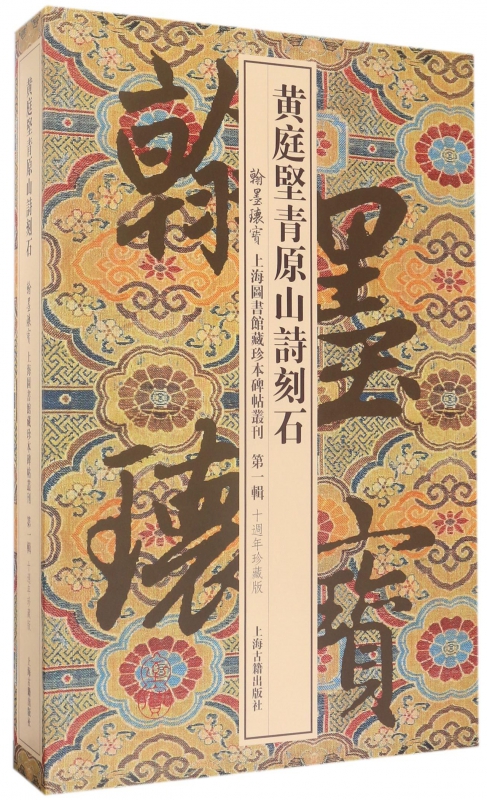 黄庭堅青原山詩刻石
翰墨瓌寶 上海圖書館藏珍本碑帖叢刊 第一輯 十週年珍藏版
上海古籍出版社
翰墨
瓌寶
黄庭堅青原山詩刻石
翰墨瓌寶 上海圖書館藏珍本碑帖叢刊 第一輯 十週年珍藏版
上海古籍出版社